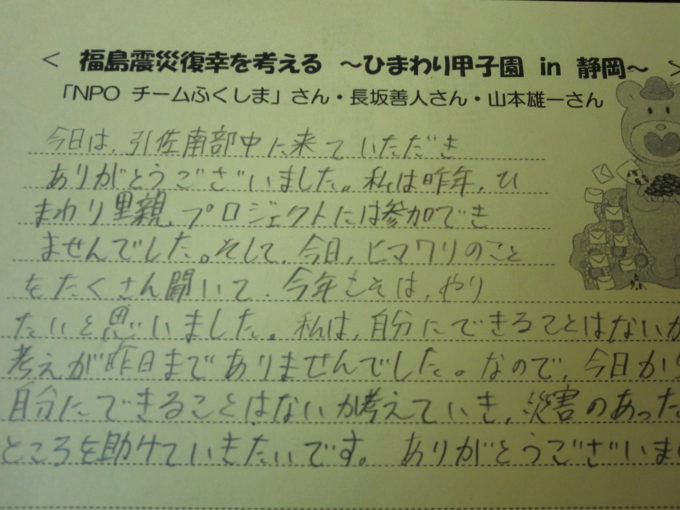 < 福島震災復幸を考える ～ひまわり甲子園 in 静岡～ >
「NPO チームふくしま」さん・長坂善人さん・山本雄一さん
今日は、引佐南部中に来ていただき
ありがとうございました。私は昨年、ひ
まわり里親プロジェクトには参加でき
ませんでした。そして、今日、ヒマワリのこと
をたくさん聞いて、今年こそは、やり
たいと思いました。私は、自分にできることはないか
考えが昨日までありませんでした。なので、今日から
自分にできることはないか考えていき、災害のあった
ところを助けていきたいです。 ありがとうございま